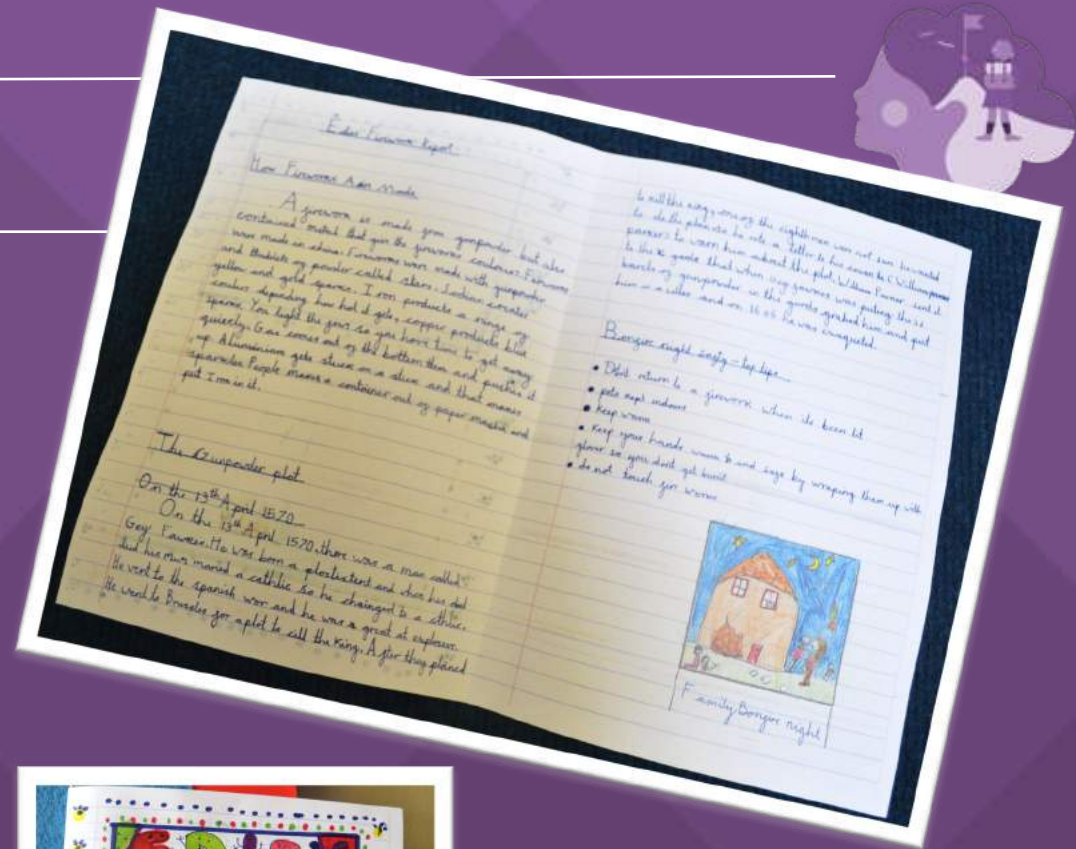 Firework Report
How Fireworks Are Made
A firework is made from gunpowder but also
contained metal that give the fireworks colour. Fireworks
were made in china. Fireworks were made with gunpowder
and of powder called stars. creates
yellow and gold sparks. Iron products a range of
coulers depending how hot it gets, copper products blue
sparks. You light the so you have time to get away
quickly. Gas comes out of the bottom then and pushes it
up. Aluminium gets stuck on a stick and that makes
sparacles. People makes a container out of paper mashe and
put I ron in it.
The Gunpowder plot
On the 13th April 1570
On the 13th April 1570, there was a man called
Guy Fawkes. He was born a and when his dad
died his mum maried a cathlic so he chainged to a
He went to the spanish wor and he was a great at
He went to for a plot to cill the King. After they planed
to kill the king, one of the eighth men were not sure he wanted
to do the plan, so he rote a letter to his William
to warn him about the plot, William sent it
to the K gards that when guy was puting the
barels of gunpowder in the gards grabed him and put
him in a and on 1605 he was
Bonfire night - top tips
• Do'nt return to a firework when its been lit
• pets kept indoors
• Keep warm
• Keep your hands warm and safe by wraping them up with
gloves so you don't get burnt
• do not touch fire works
Family Bonfire night